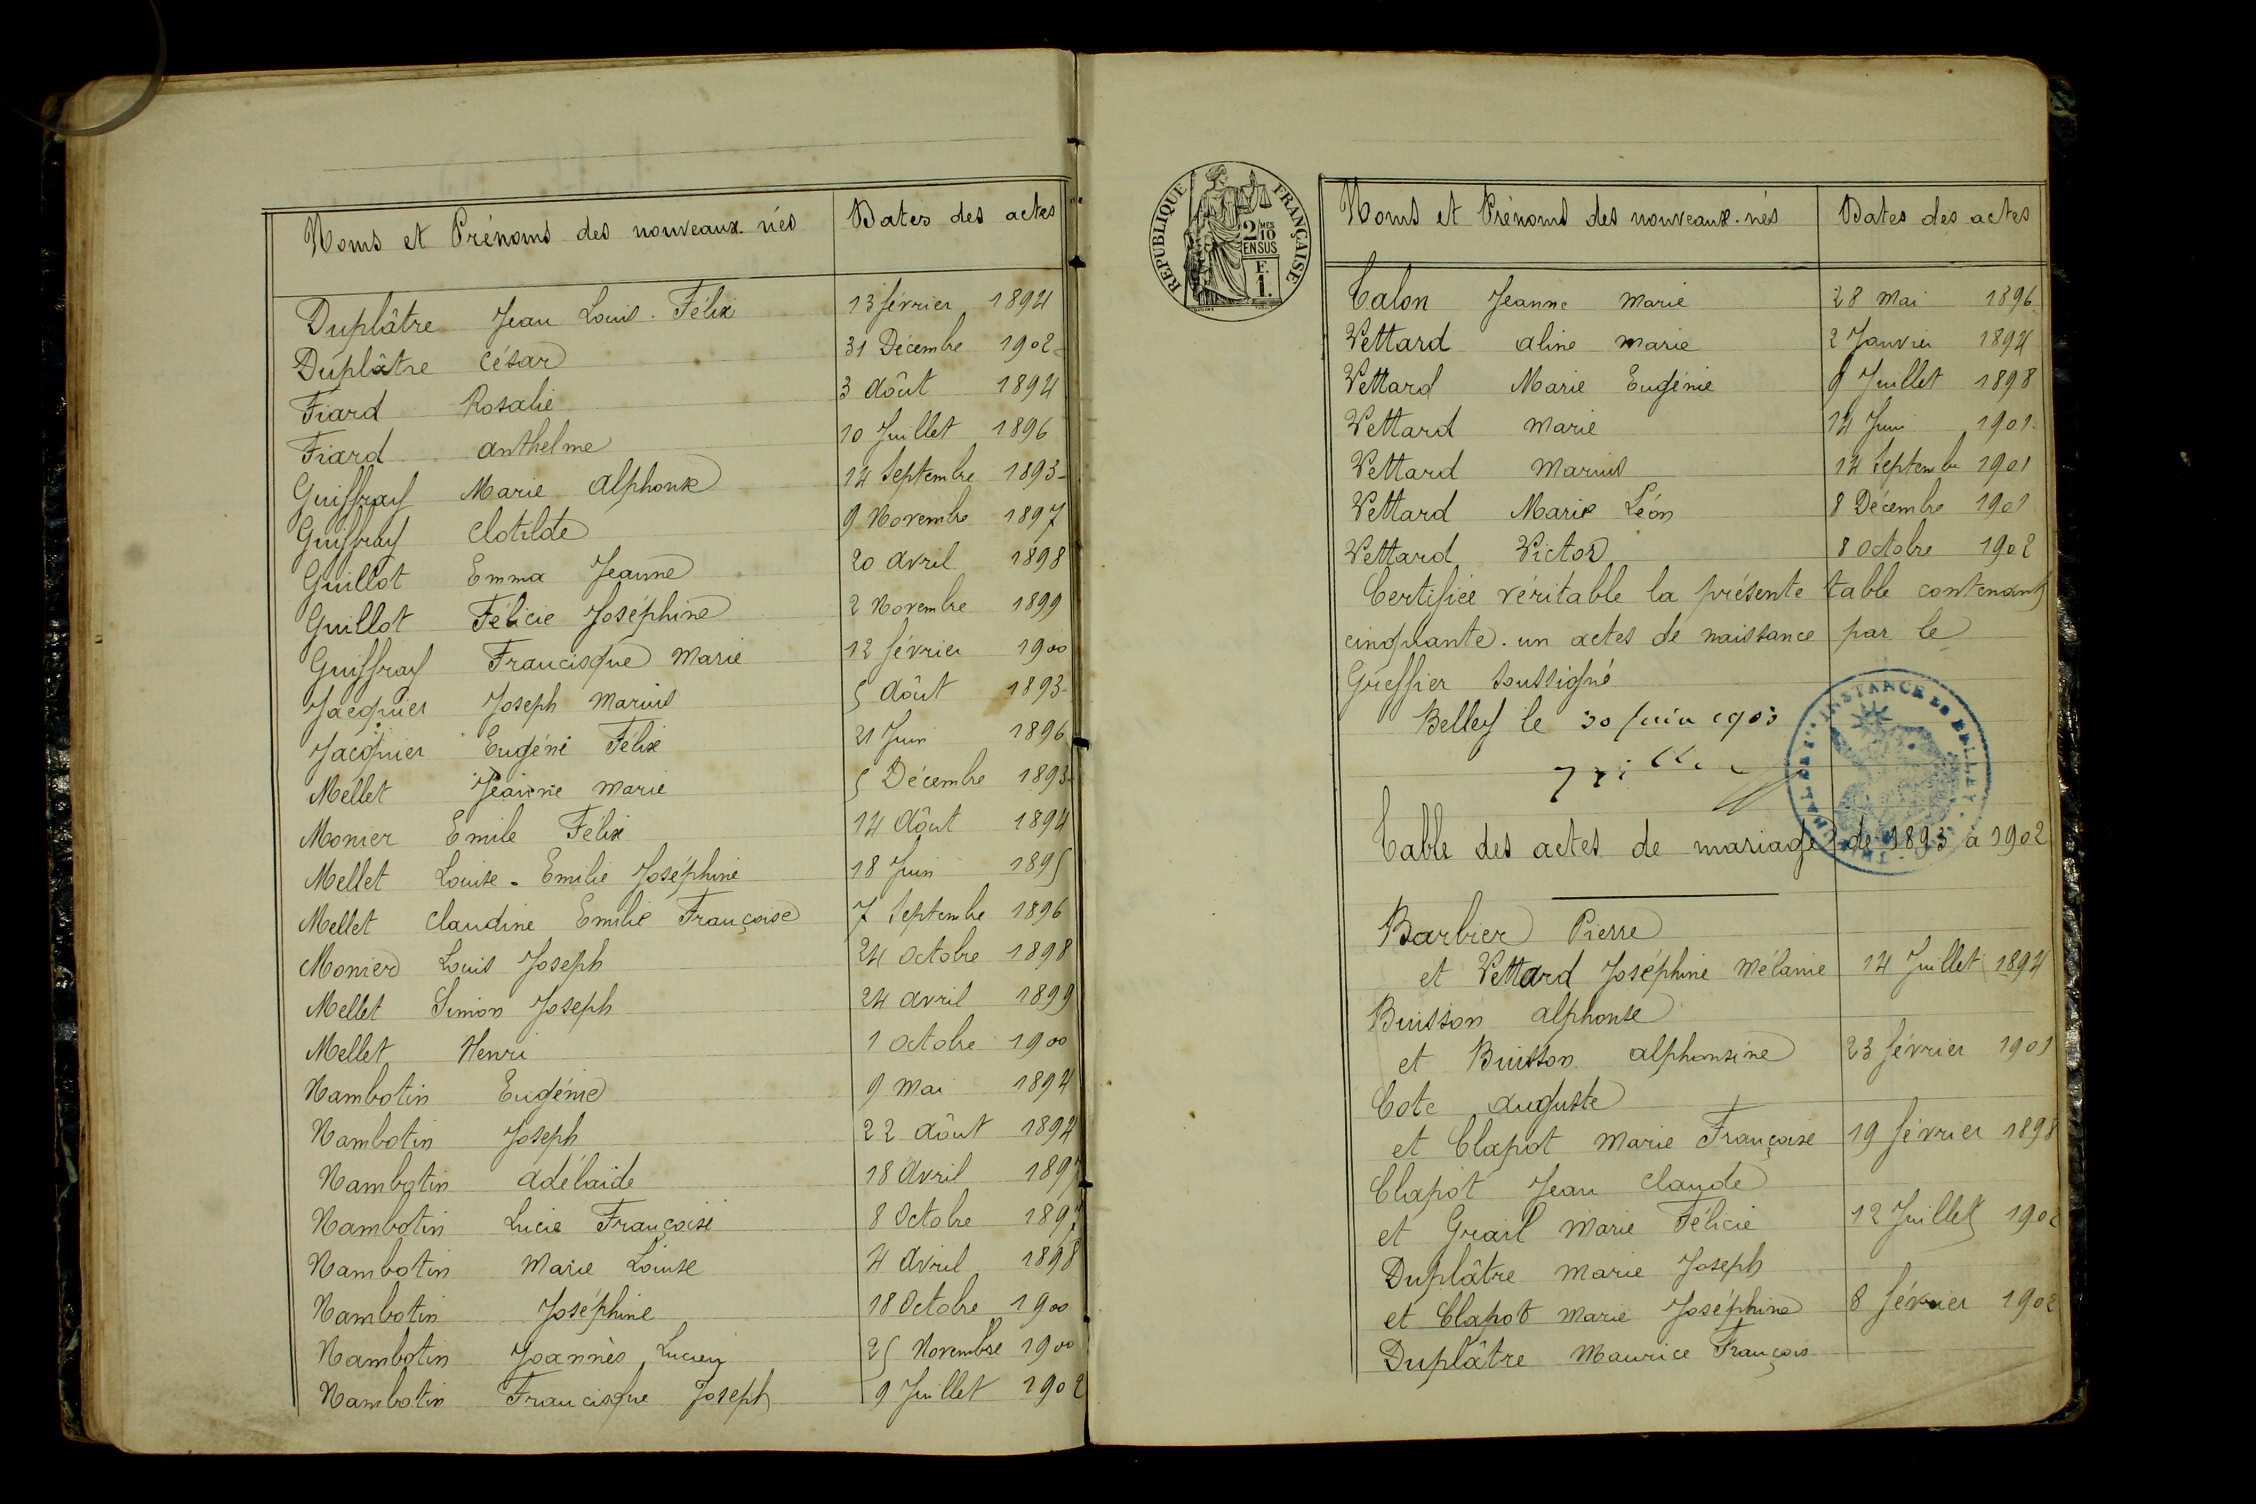 Noms et Prénoms des nouveaux-nés Dates des actes
Duplâtre Jean Louis-Félix 13 février 1894
Duplâtre César 31 Décembre 1902
Fiard Rosalie 3 Aôut 1894
Fiard Anthelme 10 Juillet 1896
Guiffray Marie Alphonse 14 Septembre 1893
Guiffray Clotilde 9 Novembre 1897
Guillot Emma Jeanne 20 Avril 1898
Guillot Félicie Joséphine 2 Novembre 1899
Guiffray Francisque Marie 12 février 1900
Jacquier Joseph Marius 5 Aôut 1893
Jacquier Eugéne Félix 21 Juin 1896
Mellet Jeanne Marie 5 Décembre 1893
Monier Emile Félix 14 Aôut 1894
Mellet Louise-Emilie Joséphine 18 Juin 1895
Mellet Claudine Emilie Françoise 7 Septembre 1896
Monier Louis Joseph 24 Octobre 1898
Mellet Simon Joseph 24 Avril 1899
Mellet Henri 1 Octobre 1900
Nambotin Eugénie 9 Mai 1894
Nambotin Joseph 22 Aôut 1894
Nambotin Adélaïde 18 Avril 1897
Nambotin Lucie Françoise 8 Octobre 1897
Nambotin Marie Louise 4 Avril 1898
Nambotin Joséphine 18 Octobre 1900
Nambotin Joannès Lucien 25 Novembre 1900
Nambotin Francisque Joseph 9 Juillet 1902
RÉPUBLIQUE FRANÇAISE
2 MES
10
EN SUS
F.
1.
Noms et Prénoms des nouveaux-nés Dates des actes
Talon Jeanne Marie 28 Mai 1896
Vettard Aline Marie 2 Janvier 1894
Vettard Marie Eugénie 9 Juillet 1898
Vettard Marie 14 Juin 1901
Vettard Marius 14 Septembre 1901
Vettard Marie Léon 8 Décembre 1901
Vettard Victor 8 Octobre 1902
Certifiée véritable la présente table contenant
cinquante-un actes de naissance par le
Greffier soussigné
Belley le 30 Juin 1903
TRIBUNAL DE 1ÈRE INSTANCE DE BELLEY
Table des actes de mariage de 1893 à 1902
Barbier Pierre
et Vettard Joséphine Mélanie 14 Juillet 1894
Buisson Alphonse
et Buisson Alphonsine 23 février 1901
Cote Auguste
et Clapot Marie Françoise 19 février 1898
Clapot Jean Claude
et Grail Marie Félicie 12 Juillet 1902
Duplâtre Marie Joseph
et Clapot Marie Joséphine 8 février 1902
Duplâtre Maurice François